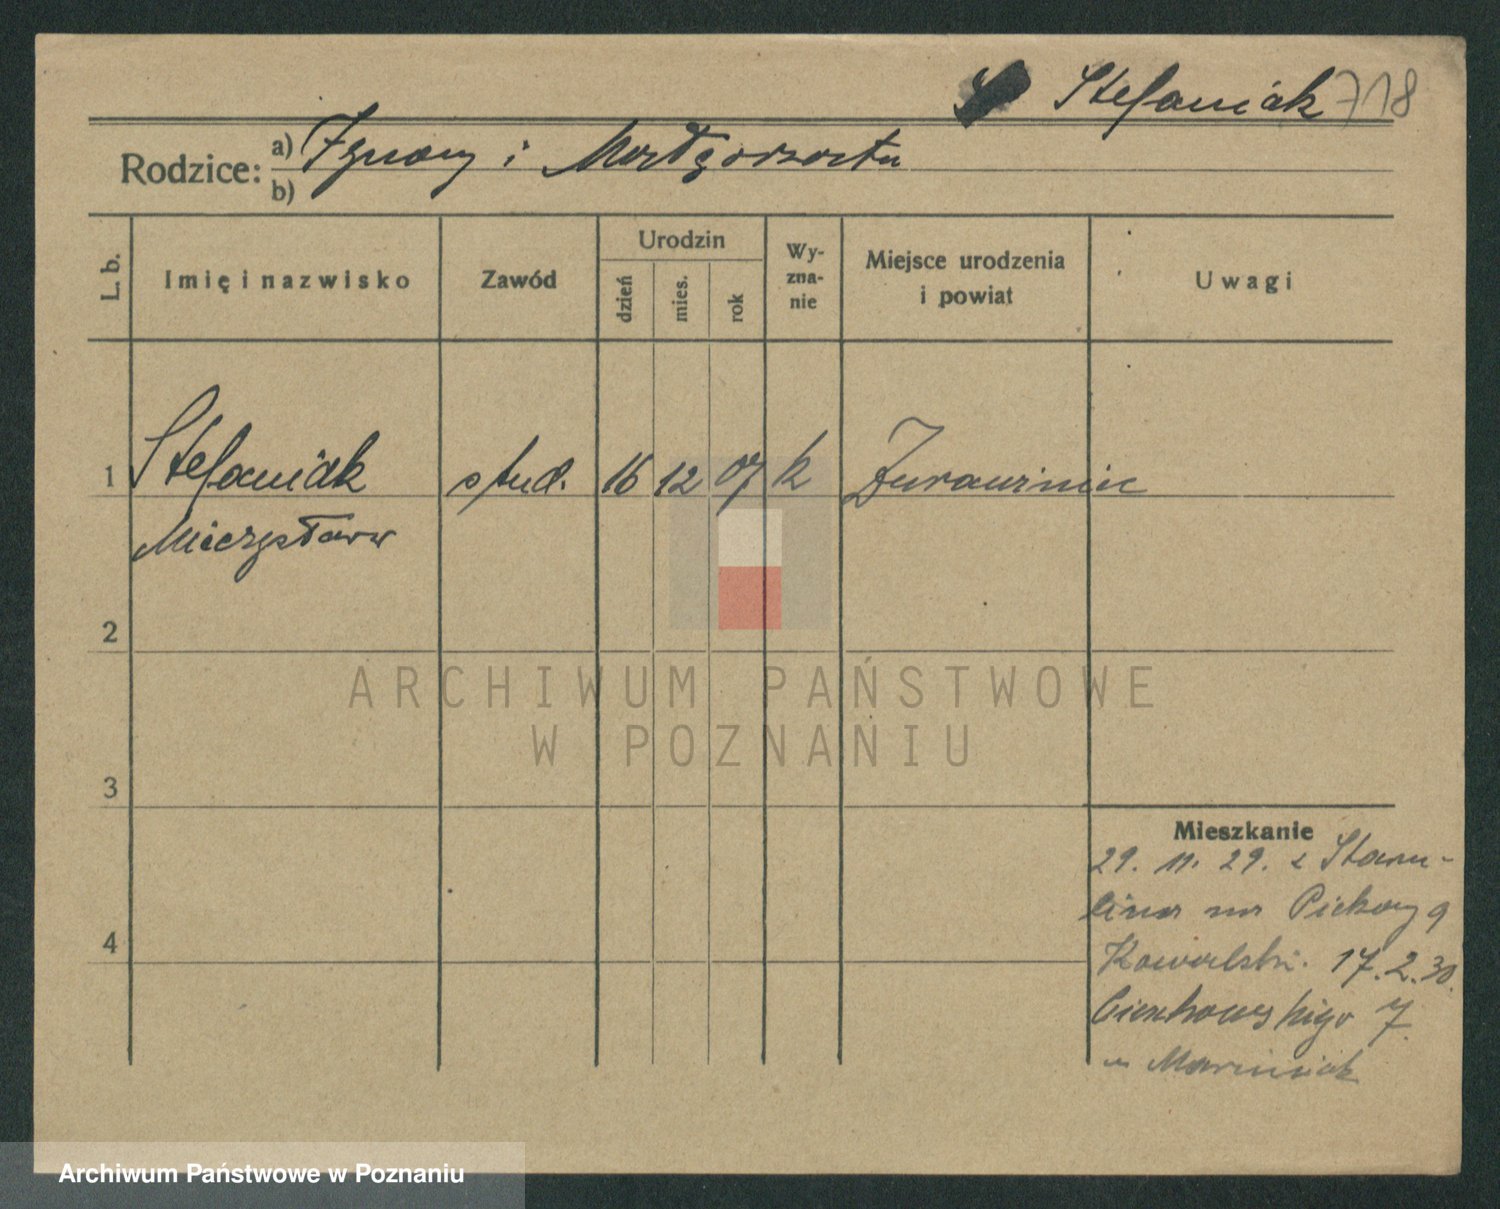 Stefaniak 718
Rodzice: a) Ignacy i Małgorzata
b)
L. b.
Imię i nazwisko
Zawód
Urodzin
dzień
mies.
rok
Wy-
zna-
nie
Miejsce urodzenia
i powiat
Uwagi
1 Stefaniak stud. 16 12 07 k Żurawiniec
Mieczysław
2
ARCHIWUM PAŃSTWOWE
W POZNANIU
3
Mieszkanie
29. 11. 29. z
na Piekary 9
Kowalski. 17.2.30.
7.
Marciniak
4
Archiwum Państwowe w Poznaniu